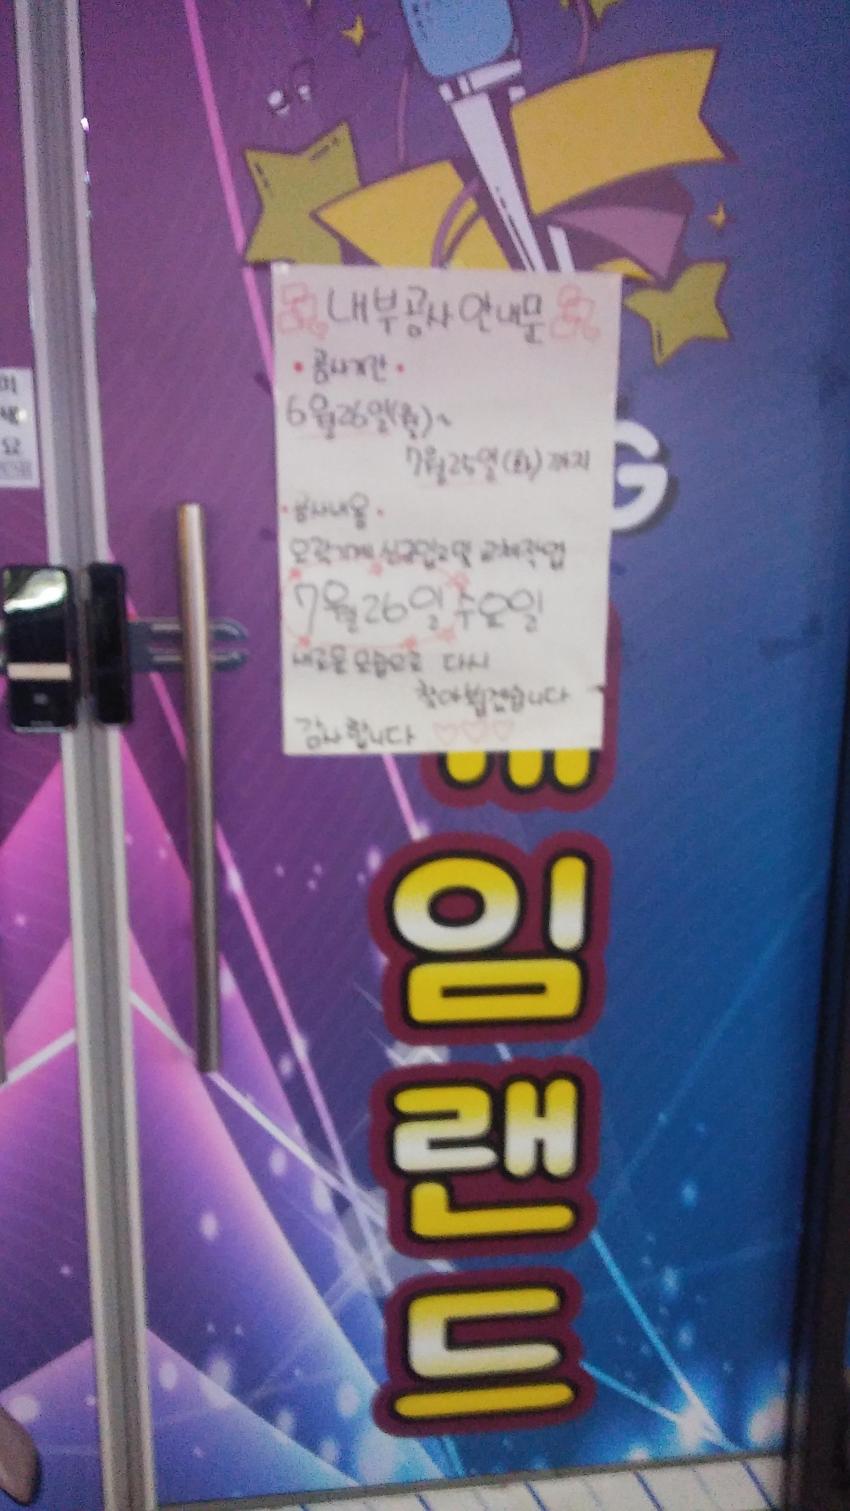 내부공사 안내문
• 공사기간 •
6월26일(월)~
7월25일(화)까지
• 공사내용 •
오락기계 신규입고 및 교체작업
7월26일 수요일
새로운 모습으로 다시
찾아뵙겠습니다
감사합니다 ♡♡♡
G
임
랜
드